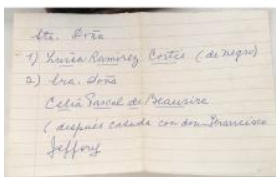 Sta. Doña
1) Luisa Ramirez Cortés (de negro)
2) Sra. Doña
Celia Pascal de Beausire
(después casada con don Francisco
Jefforf